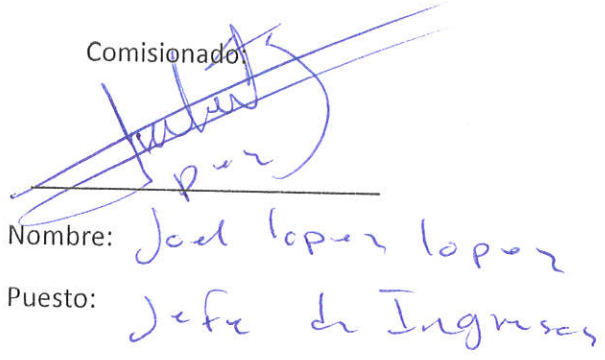 Comisionado:
Nombre: Joel lopez lopez
Puesto: Jefe de Ingresos